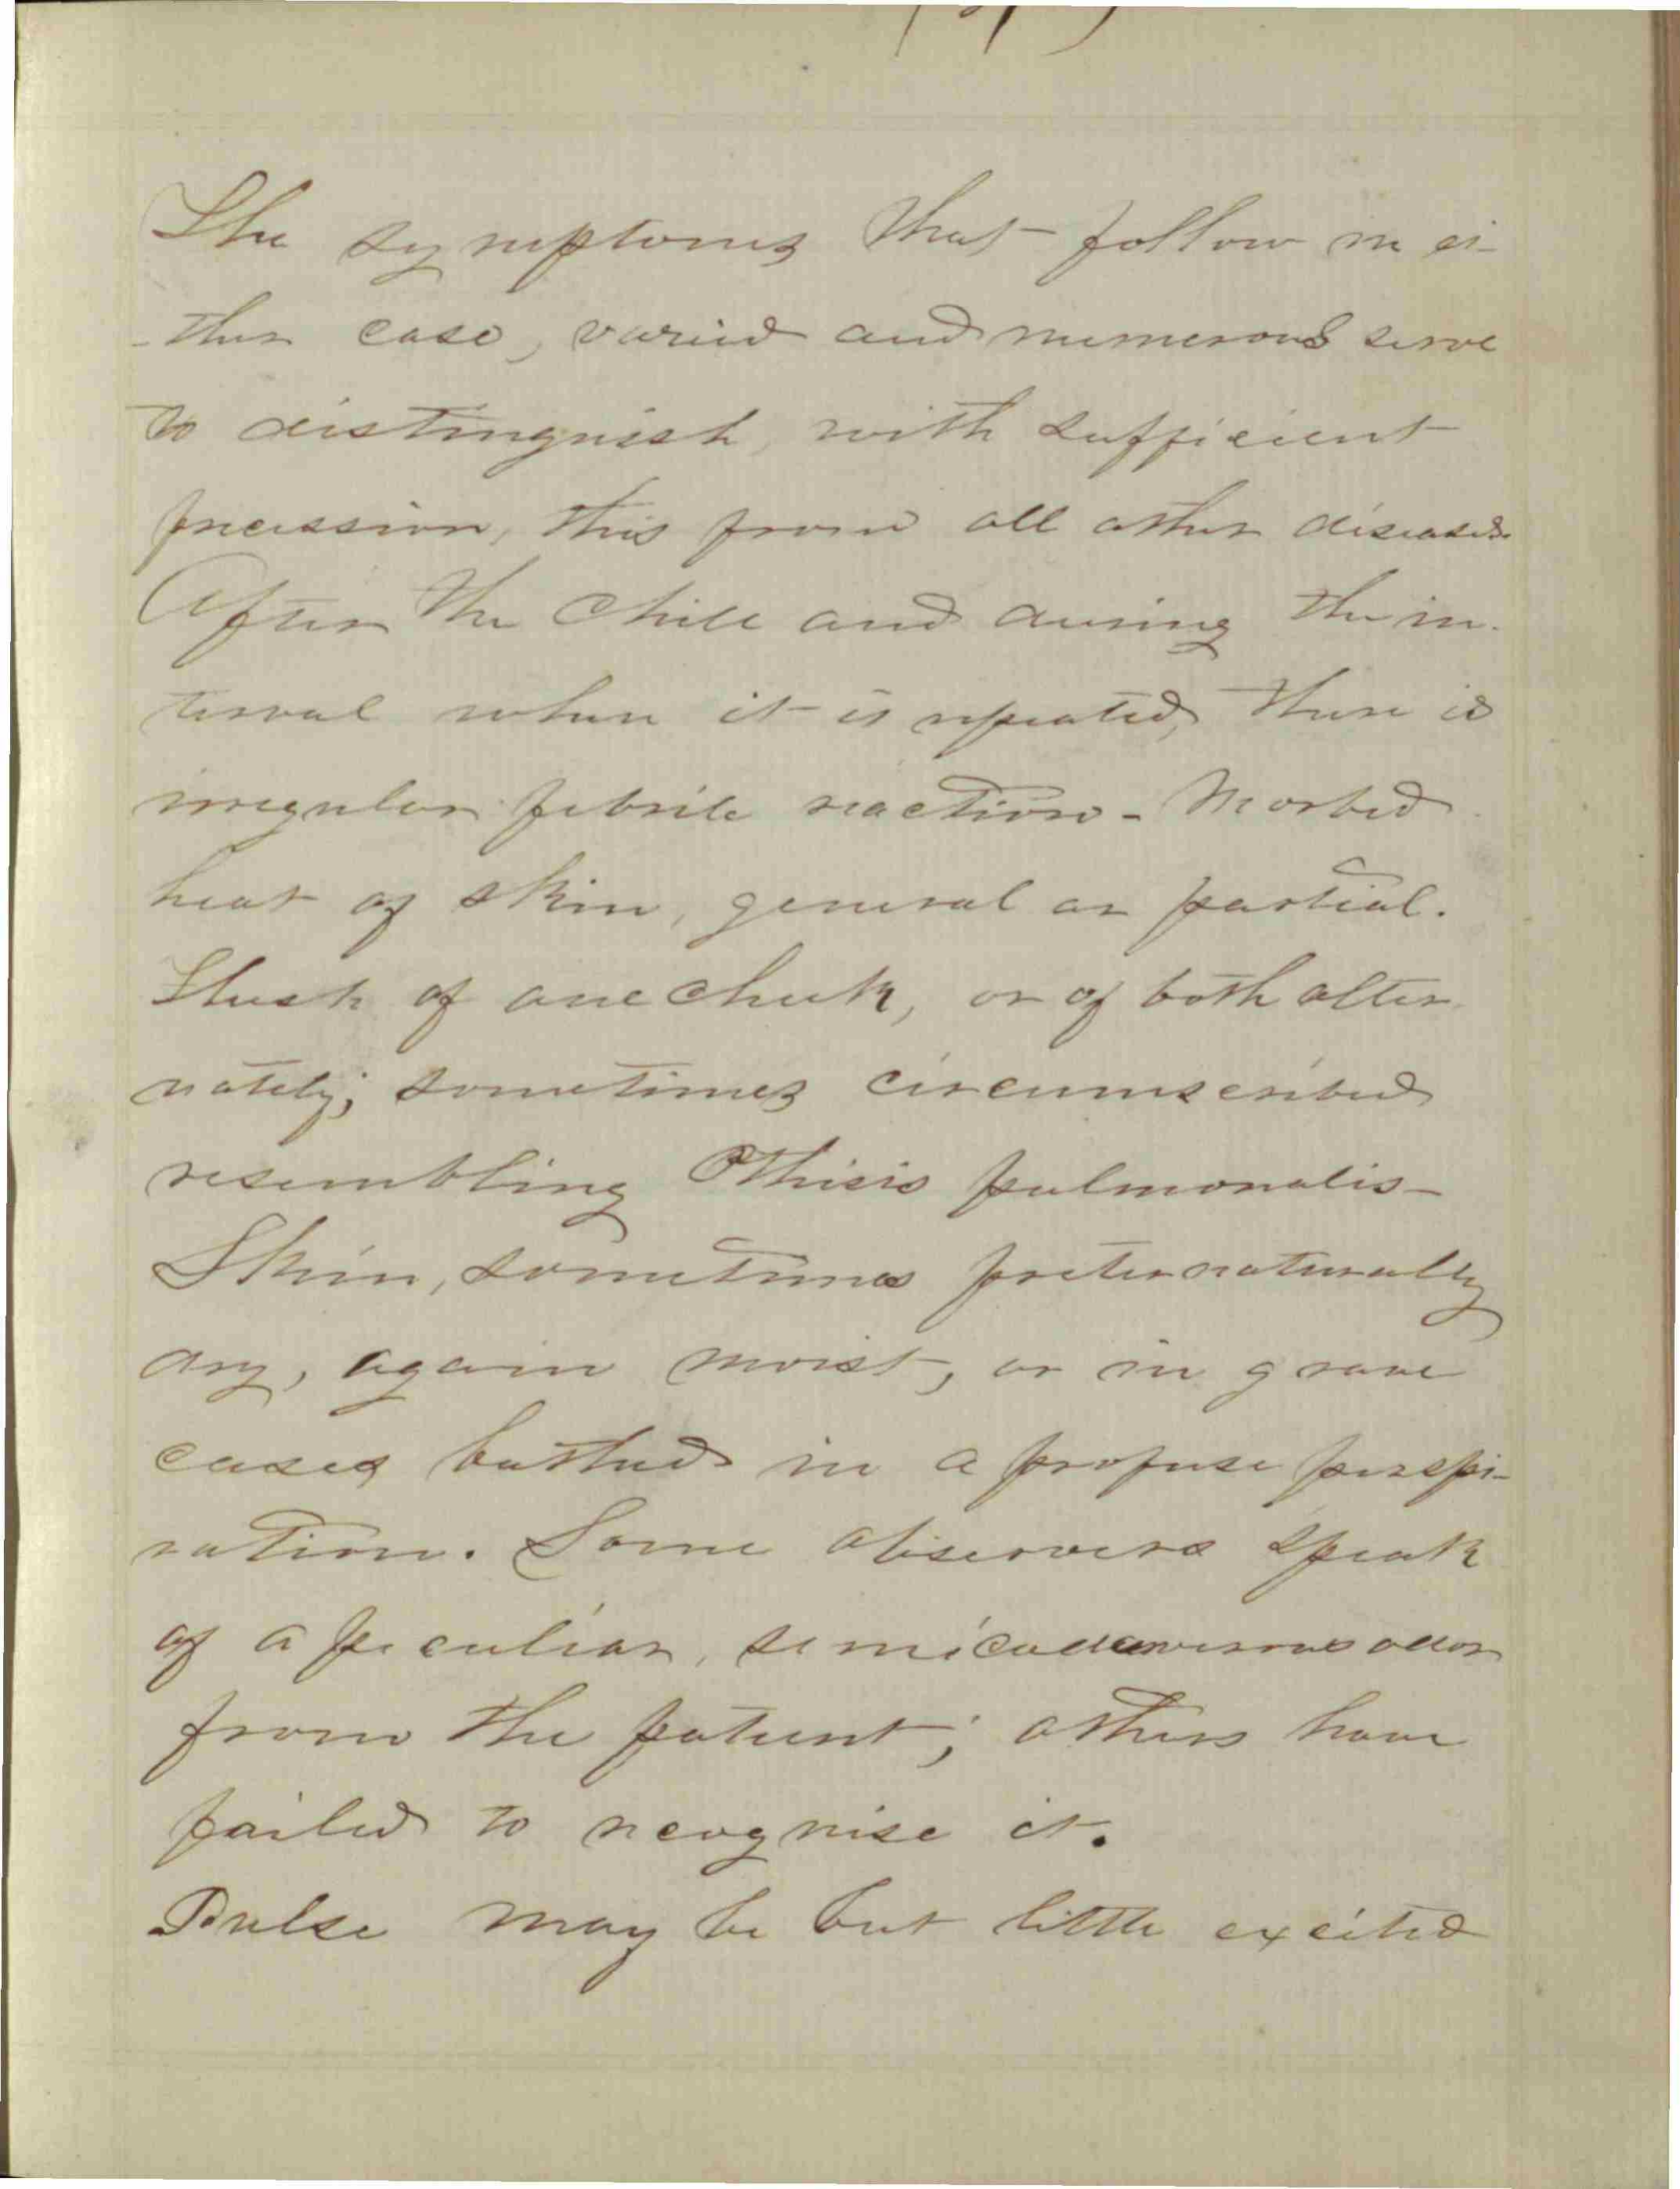 The symptoms that follow in ei-
-ther case, varied and numerous serve
to distinguish, with sufficient
precission, this from all other diseases.
After the Chill and during the in-
terval when it is repeated, there is
irregular febrile reaction - Morbid
heat of skin, general or partial.
Flush of one cheek, or of both alter
nately; sometimes circumscribed
resembling Pthisis pulmonalis -
Skin, sometimes preternaturally
dry, again moist, or in grave
cases bathed in a profuse perspi-
ration. Some observers speak
of a peculiar, semicadaverous odor
from the patient; others have
failed to recognise it.
Pulse may be but little excited